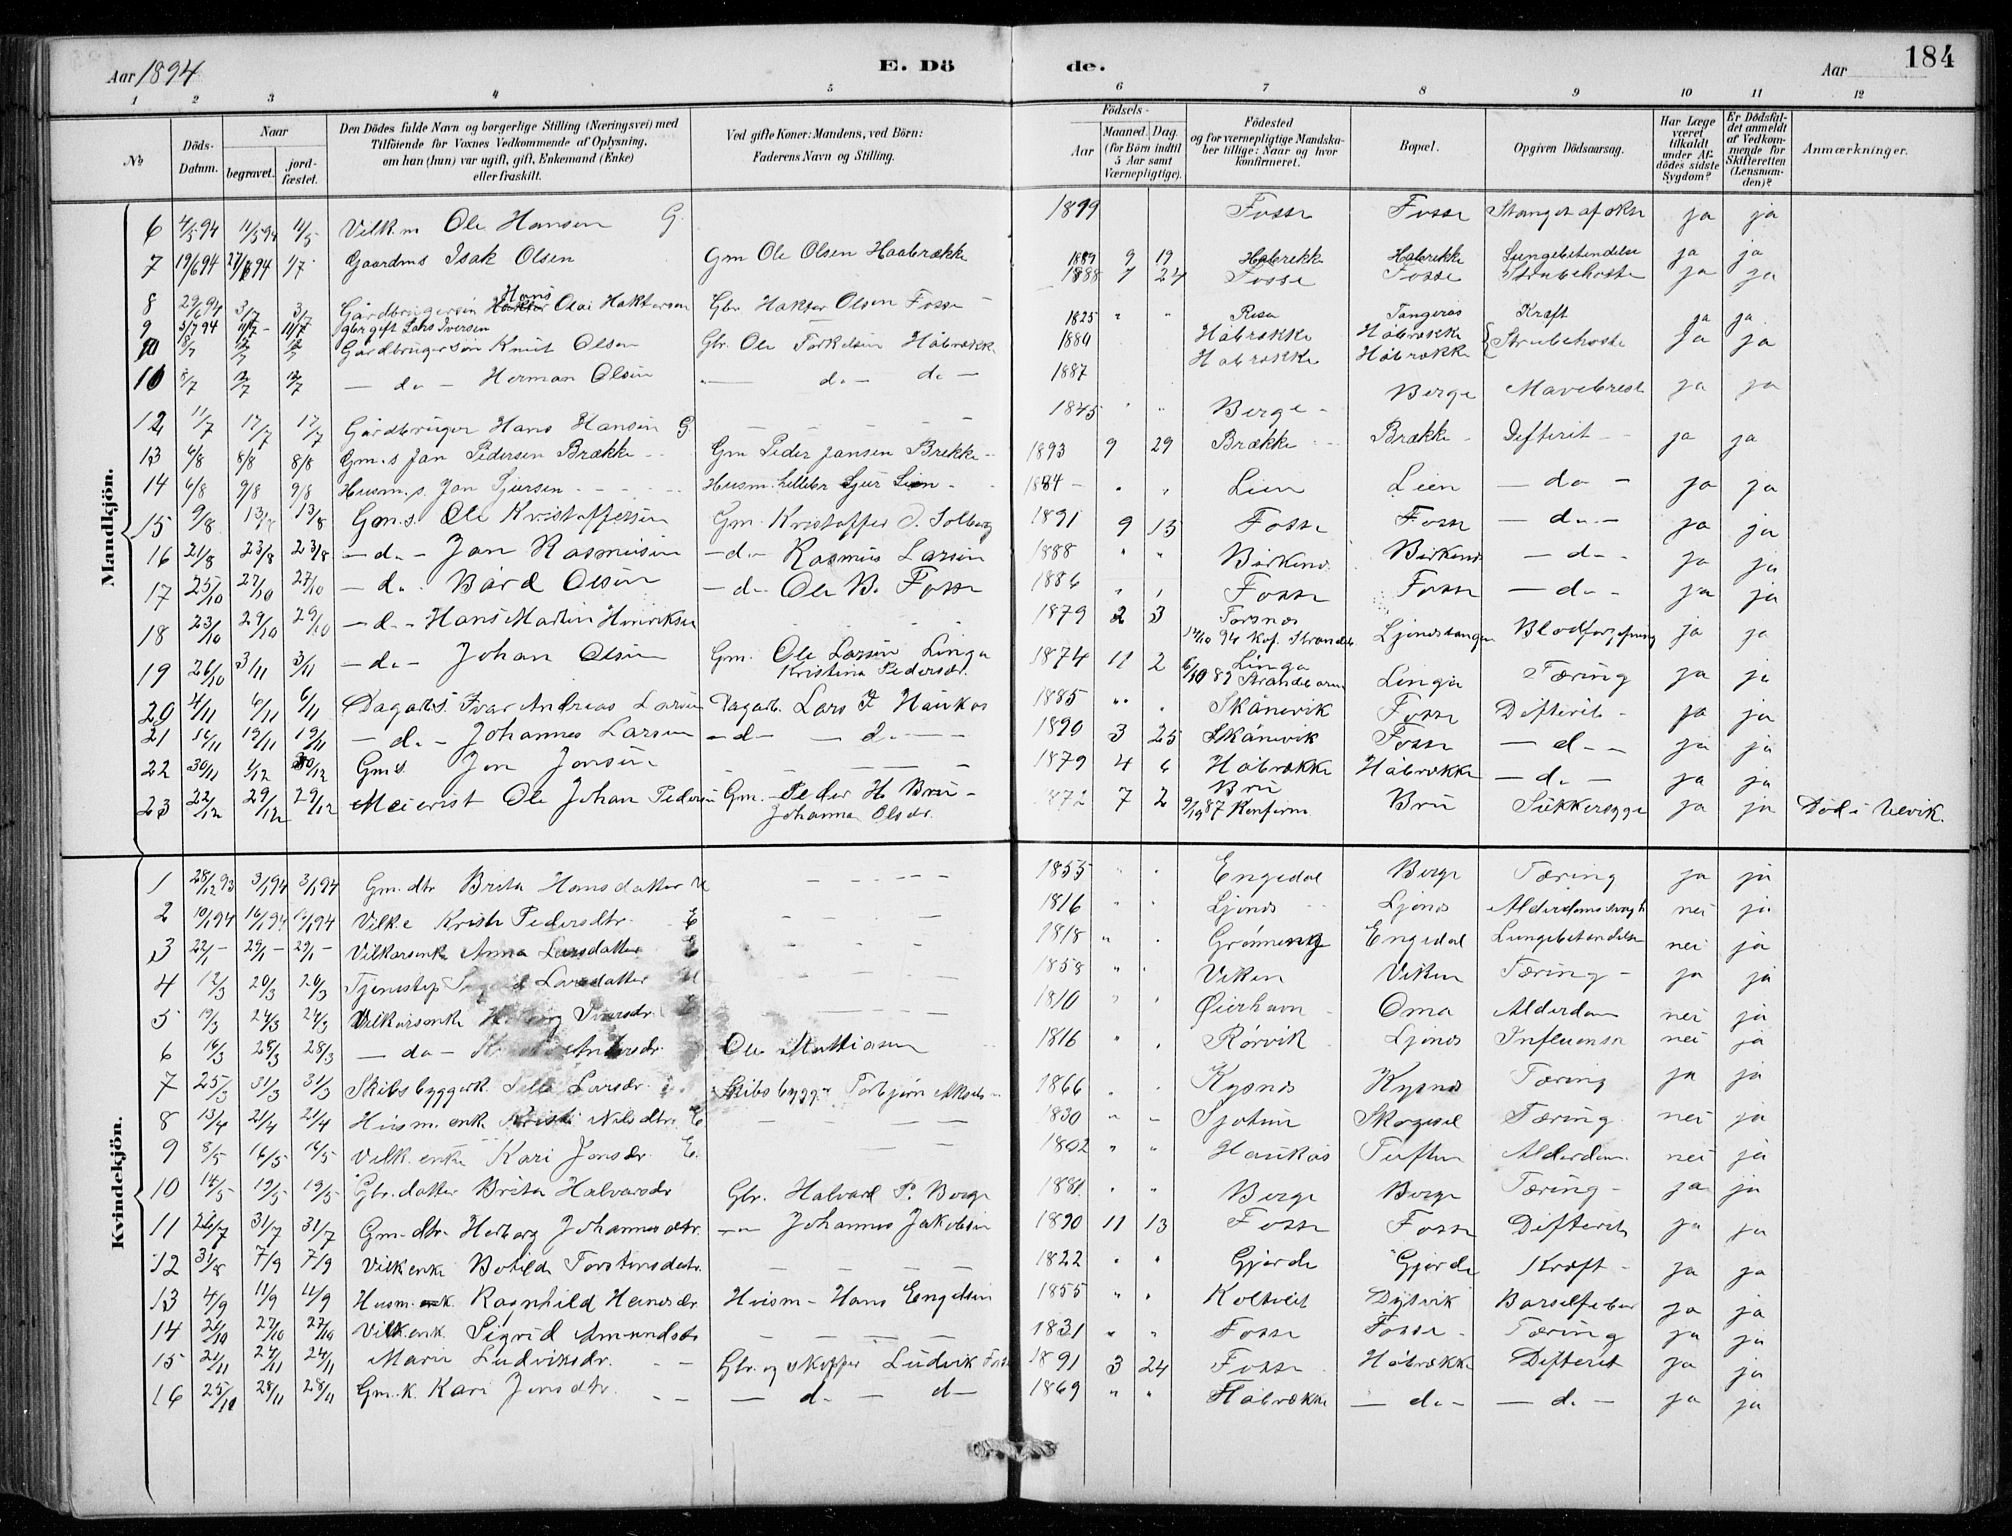 184
Aar 1894 E. Dö de. Aar
1 2 3 4 5 6 7 8 9 10 11 12
No Döds-Datum. Naar begravet. jordfæstet. Den Dödes fulde Navn og borgerlige Stilling (Næringsvei) med Tilföiende for Voxnes Vedkommende af Oplysning, om han (hun) var ugift, gift, Enkemand (Enke) eller fraskilt. Ved gifte Koner: Mandens, ved Börn: Faderens Navn og Stilling. Födsels- Aar Maaned Dag. (for Börn indtil 5 Aar samt Værnepligtige). Födested og for værnepligtige Mandskaber tillige: Naar og hvor konfirmeret. Bopæl. Opgiven Dödsaarsag. Har Læge været tilkaldt under Afdödes sidste Sygdom? Er Dödsfaldet anmeldt af Vedkommende for Skifteretten (Lensmanden)? Anmærkninger.
Mandkjön.
6 4/5 94 11/5 94 11/5 Vilk.m Ole Hansen G. Fosse Fosse Stanget af okse ja ja
7 19/6 94 27/6 94 1/7 Gaardms Isak Olsen Gm Ole Olsen Haabrække 1889 9 19 Habrekke Habrekke Lungebetendelse ja ja
8 29/6 94 3/7 3/7 Gårdbrugersøn Hans Olai Haktorsen Gbr. Haktor Olsen Fosse 1888 7 24 Fosse Fosse Strubehoste ja ja
9 3/7 94 11/7 11/7 gbr gift Lars Iversen 1825 " " Resa Tangerås Kræft ja ja
10 8/7 12/7 12/7 Gårdbrugersøn Knut Olsen Gbr. Ole Torkelsen Håbrække 1880 Håbrække Håbrække Strubehoste ja ja
8/7 12/7 12/7 — do — Herman Olsen — do — do — 1887 Håbrække Håbrække
12 11/7 17/7 17/7 Gårdbruger Hans Hansen G. — — — 1845 " " Berge Berge Mavebrest ja ja
13 6/8 8/8 8/8 Gm.s Jan Pedersen Brække Gm Peder Jansen Brekke 1893 9 29 Brække Brække Difterit ja ja
14 6/8 9/8 9/8 Husm.s. Jan Sjursen Husm. Sjur Lien 1884 " " Lien Lien — do — ja ja
15 9/8 13/8 13/8 Gm.s. Ole Kristoffersen Gm. Kristoffer O. Solberg 1891 9 13 Fosse Fosse — do — ja ja
16 21/8 23/8 23/8 — do — Jan Rasmusen — do — Rasmus Larsen 1888 " " Birkenes Birkenes — do — ja ja
17 25/10 27/10 27/10 — do — Bård Olsen — do — Ole B. Fosse 1886 " " Fosse Fosse — do — ja ja
18 23/10 29/10 29/10 — do — Hans Martin Henriksen 1879 2 3 Torsnes 94 Kof. Strandeb Ljonestangen Blodforgiftning ja ja
19 26/10 3/11 3/11 — do — Johan Olsen Gm. Ole Larsen Linga Kristina Pedersdr. 1874 11 2 Linga 6/10 89 Strandebarm Linga Tæring ja ja
20 4/11 6/11 6/11 Dagarb.s. Ivar Andreas Larsen Dagarb. Lars I Haukås 1885 " " Skånevik Fosse Difterit ja ja
21 14/11 19/11 19/11 — do — Johannes Larsen — do — — do — 1890 3 25 Skånevik Fosse — do — ja ja
22 30/11 1/12 30/12 Gms. Jon Jonsen — — — 1879 4 6 Håbrække Håbrække — do — ja ja
23 22/12 29/12 29/12 Meierist Ole Johan Pedersen Gm. Peder H. Bru Johanna Olsdr. 1872 7 2 Bru 87 Konfirm Bru Sukkersyge ja ja Död i Ulvik.
Kvindekjön.
1 28/12 93 3/1 94 3/1 94 Gm.dtr Brita Hansdatter U — — — 1855 " " Engedal Berge Tæring ja ja
2 10/1 94 16/1 94 16/1 94 Vilk.e Kristi Pedersdtr. E — — — 1816 " " Ljones Ljones Alderdomssvagh nei ja
3 22/1 - 29/1 - 29/1 - Vilkarsenke Anna Larsdatter E — — — 1818 " " Grönneng Engedal Lungebetendelse nei ja
4 12/3 20/3 20/3 Tjenestep Larsdatter U — — — 1858 " " Viken Viken Tæring ja ja
5 19/3 24/3 24/3 Vilkarsenke Iversdr. E — — — 1810 " " Øierhavn Oma Alderdom nei ja
6 16/3 28/3 28/3 — do — Andersdr. Ole Mathiasen 1816 " " Rørvik Ljones Influensa nei ja
7 25/3 31/3 31/3 Skibsbyggerk. Larsdr. Skibsbygger Torbjørn Aksels 1866 " " Kysnes Kysnes Tæring ja ja
8 13/4 21/4 21/4 Husm.enke Kristi Nilsdtr. E — — — 1830 " " Sjotun Skogseid Tæring nei ja
9 8/5 16/5 16/5 Vilk.enke Kari Jonsdr. E. — — 1802 " " Haukås Tuften Alderdom nei ja
10 14/5 19/5 19/5 Gbr.datter Brita Halvarsdr Gbr. Halvard P. Berge 1881 " " Berge Berge Tæring ja ja
11 26/7 31/7 31/7 Gm.dtr Herborg Johannesdtr. — Johannes Jakobsen 1890 11 13 Fosse Fosse Difterit ja ja
12 31/8 7/9 7/9 Vilkenke Botilde Torstensdatr. — — — 1822 " " Gjerde Gjerde Kræft ja ja
13 4/9 11/9 11/9 Husm.k. Ragnhild Hansdr Husm. Hans Engelsen 1855 " " Koltveit Dysvik Barselfeber ja ja
14 21/10 27/10 27/10 Vilkenk. Sigrid Amundsdr — — — 1831 " " Fosse Fosse Tæring ja ja
15 21/11 24/11 24/11 Marie Ludviksdr. Gbr. og skipper Ludvik Fosse 1891 3 24 Fosse Håbrække Difterit ja ja
16 25/11 28/11 28/11 Gm.k. Kari Jonsdtr. — do — do — 1869 " " Håbrække — do — — do — ja ja